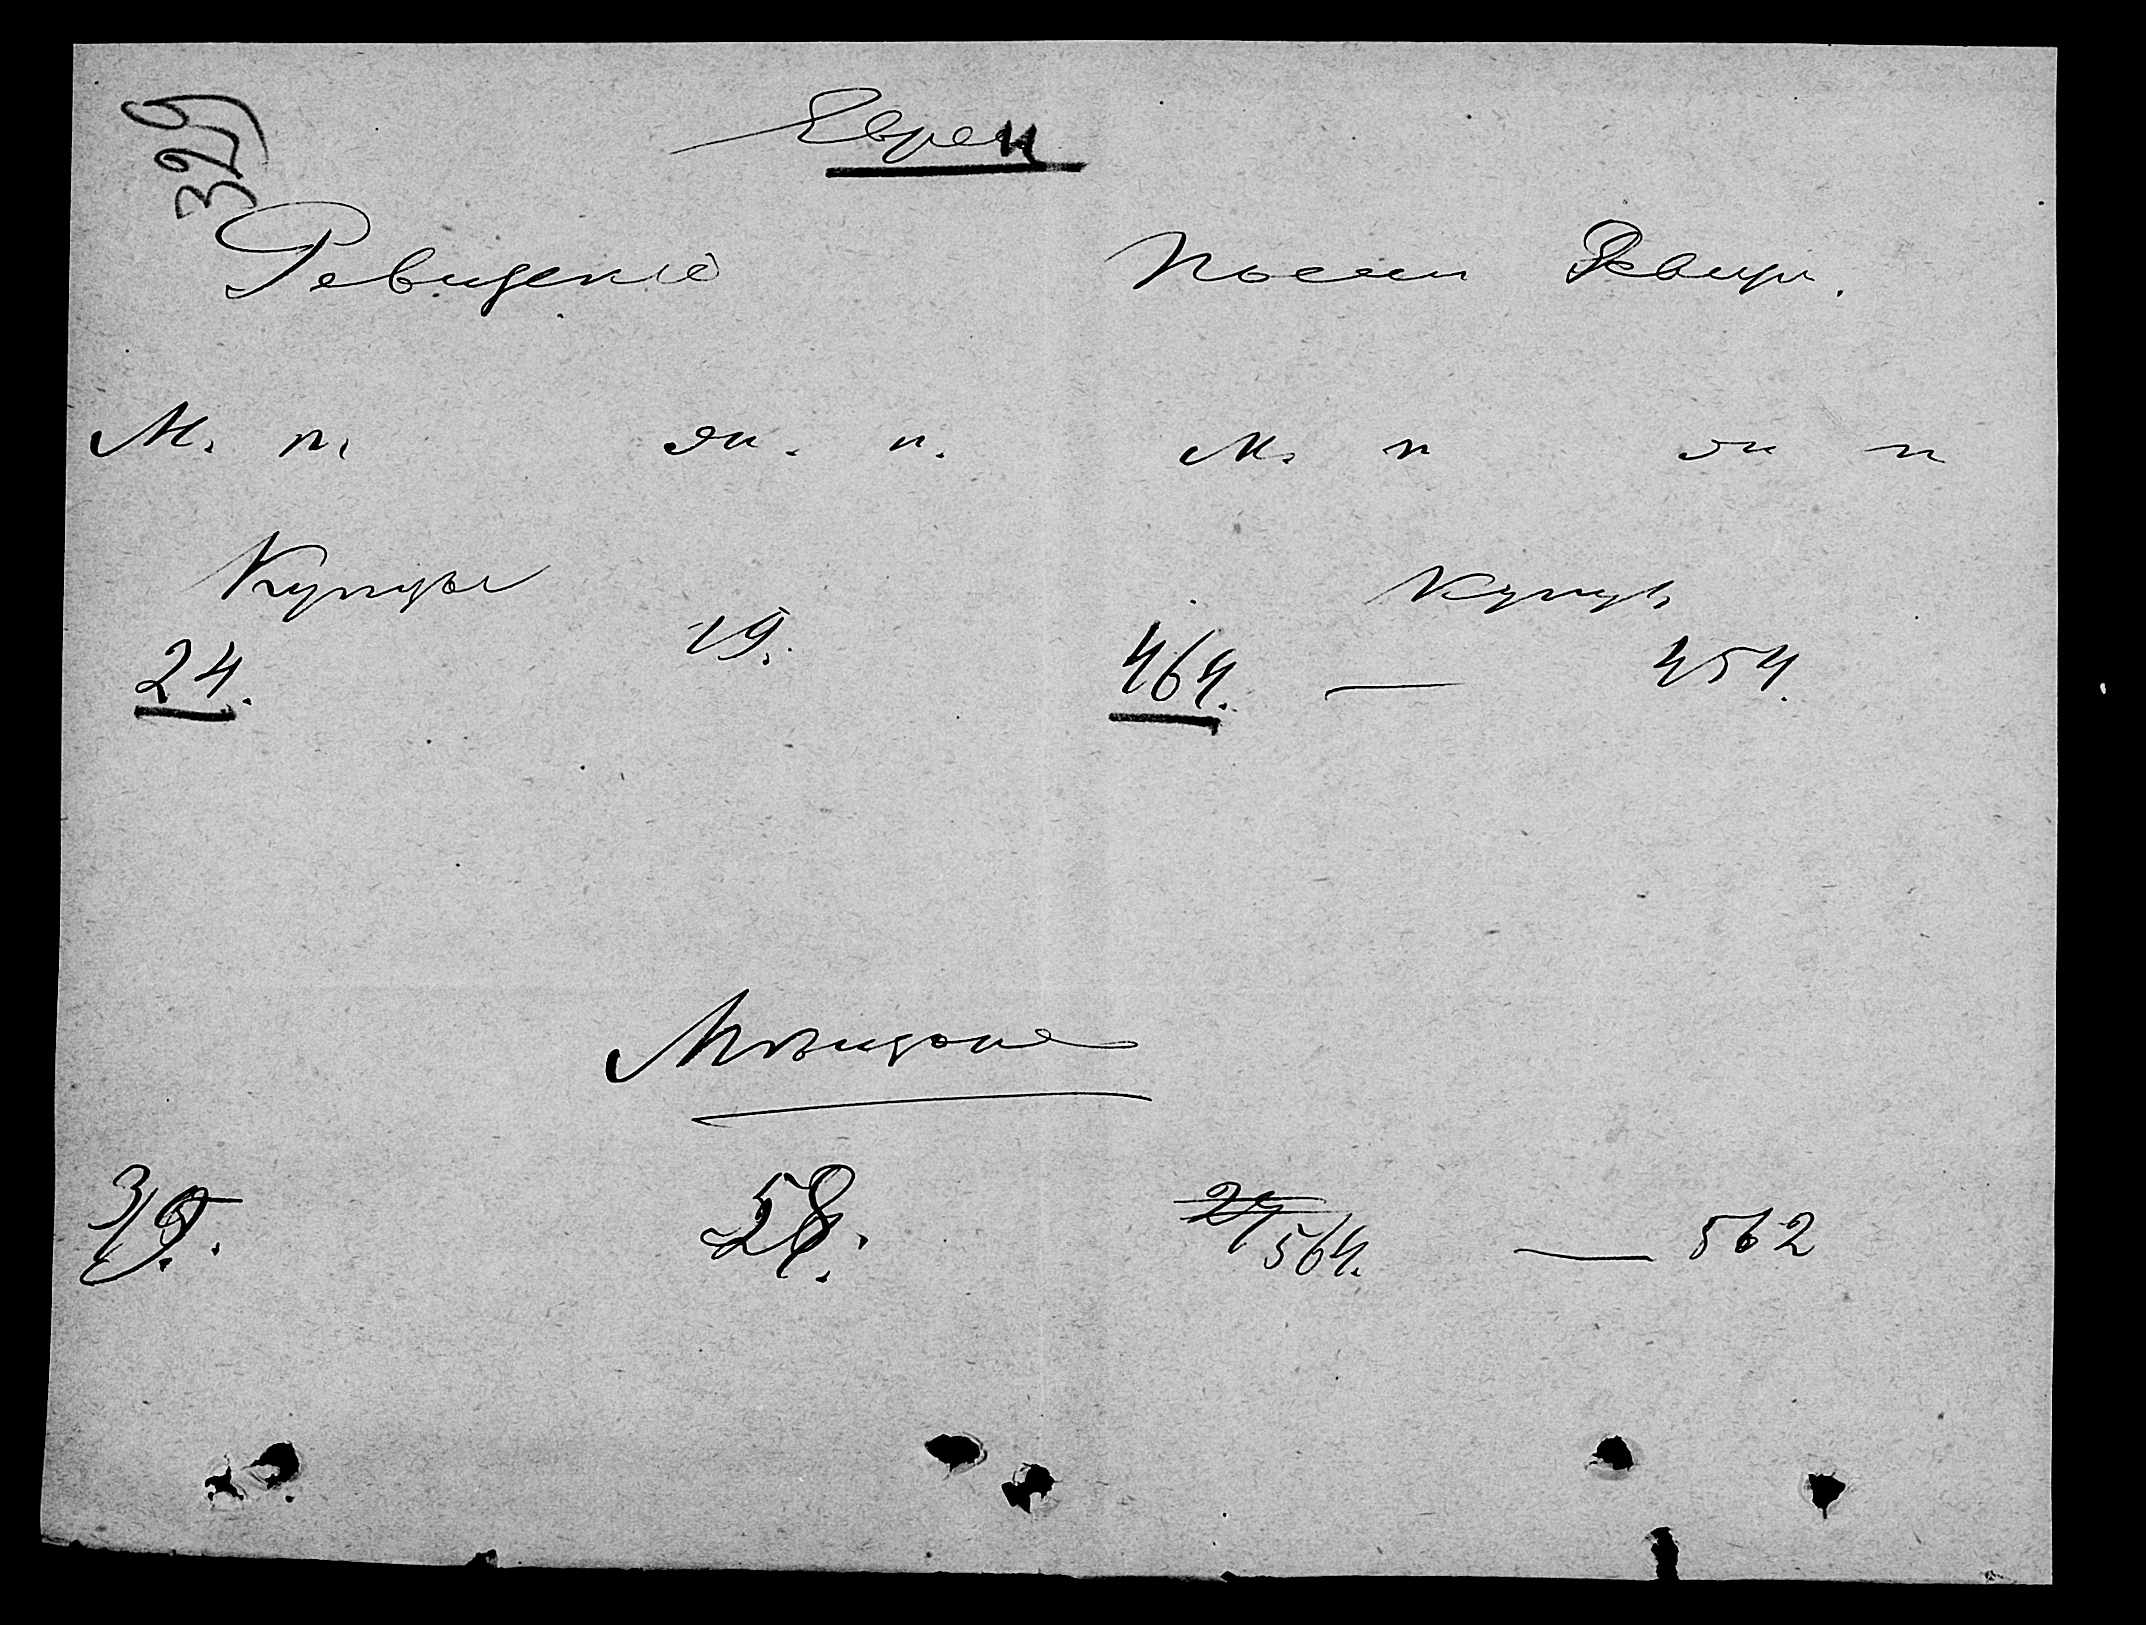 329
Евреи
Ревизские После Ревиз.
М. п. ж. п. М. п ж п
Купцы Купцы
24. 19. 464. — 454.
Мещане
39. 58. 564. — 562